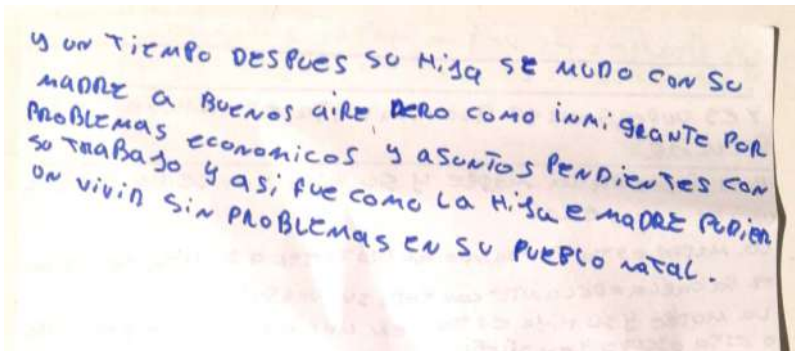 y un Tiempo Despues su Hija se mudo con su
madre a Buenos aire, pero como inmigrante por
problemas economicos y asuntos pendientes con
su trabajo y asi fue como la Hija e madre pudier
on vivir sin problemas en su pueblo natal.